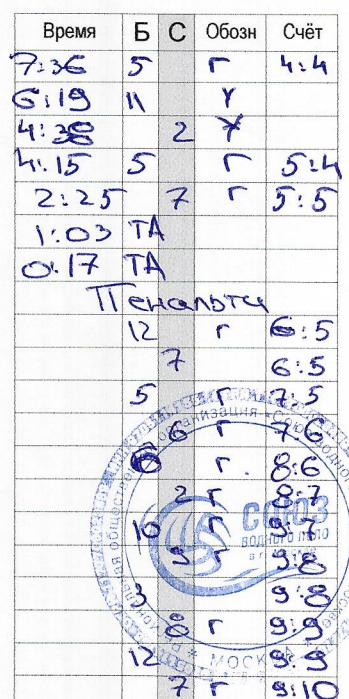 Время Б С Обозн Счёт
7:36 5 Г 4:4
6:19 11 У
4:38 2 У
4:15 5 Г 5:4
2:25 7 Г 5:5
1:03 ТА
0:17 ТА
Пенальти
12 Г 6:5
7 6:5
5 Г 7:5
6 Г 7:6
6 Г 8:6
2 Г 8:7
10 Г 9:7
9 Г 9:8
3 9:8
8 Г 9:9
12 9:9
7 Г 9:10
СОЮЗ
ВОДНОГО ПОЛО
МОСКВА